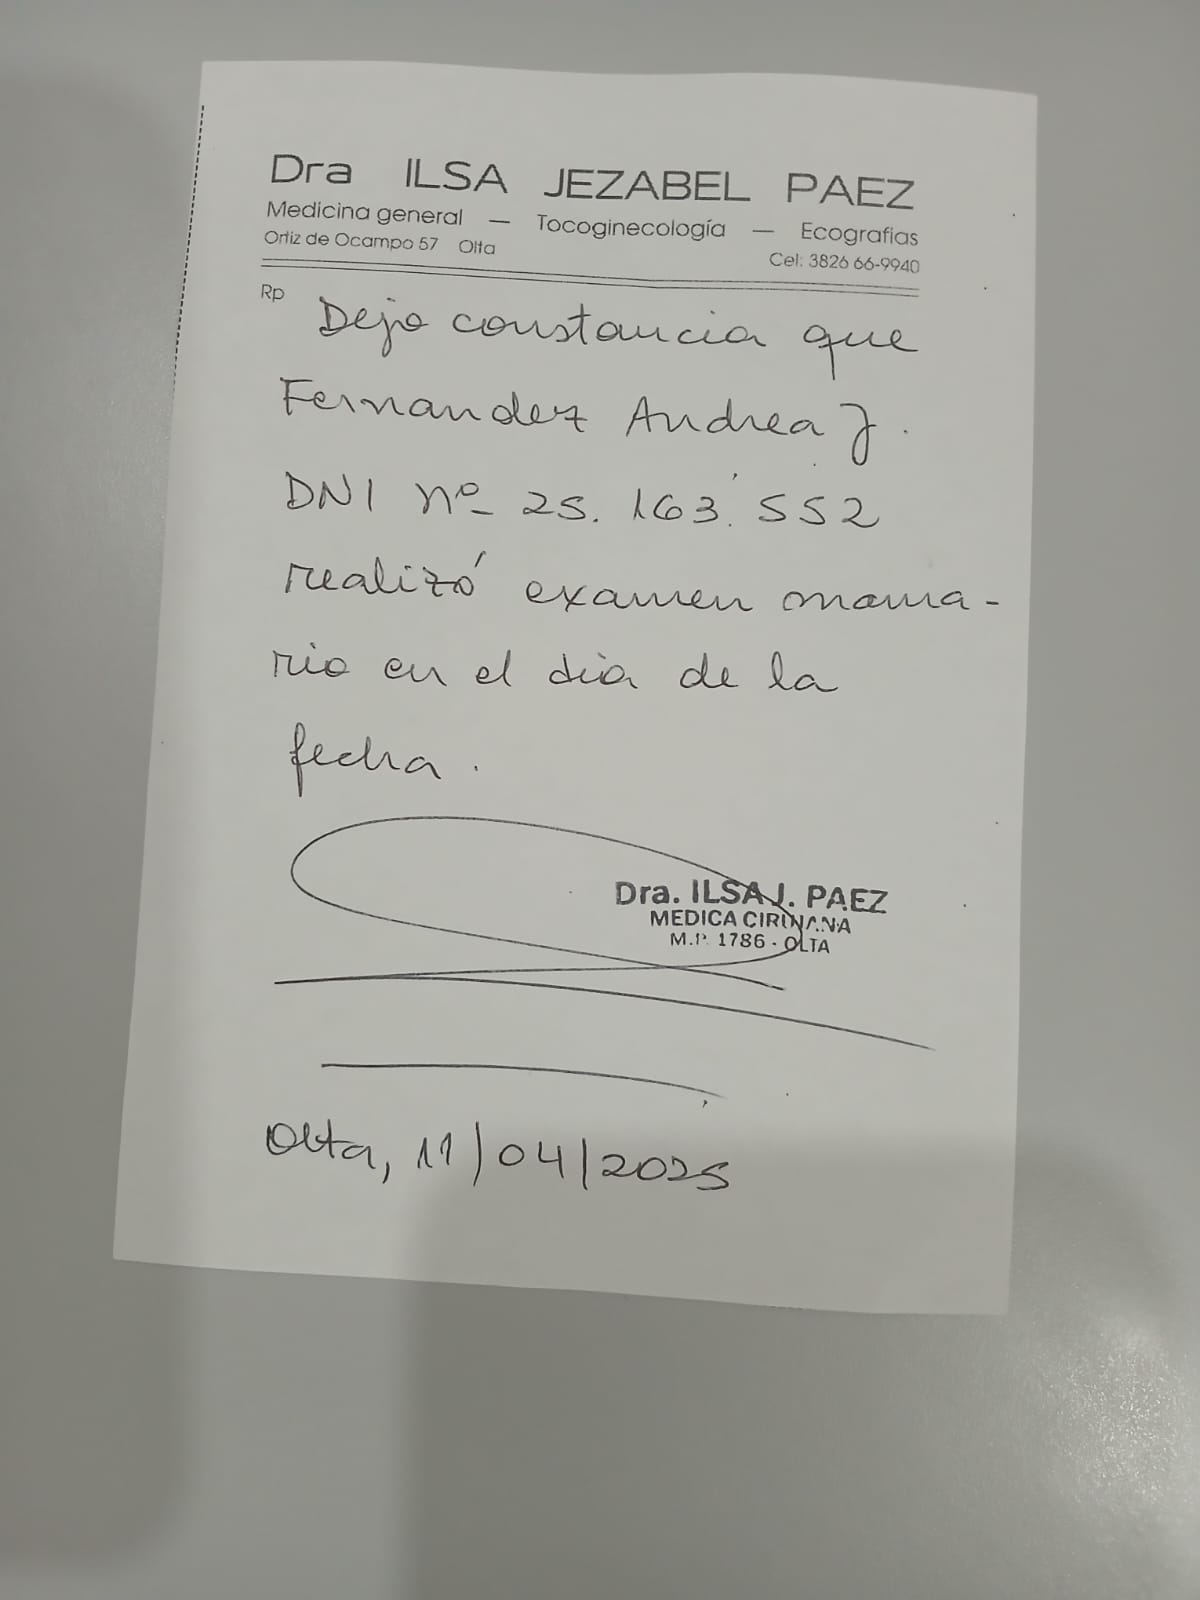 Dra ILSA JEZABEL PAEZ
Medicina general — Tocoginecología — Ecografias
Ortiz de Ocampo 57 Olta Cel: 3826 66-9940
Rp
Dejo constancia que
Fernandez Andrea J.
DNI nº 25.163.552
realizó examen mama-
rio en el dia de la
fecha.
Dra. ILSA J. PAEZ
MEDICA CIRUJANA
M.P. 1786 - OLTA
Olta, 11/04/2025